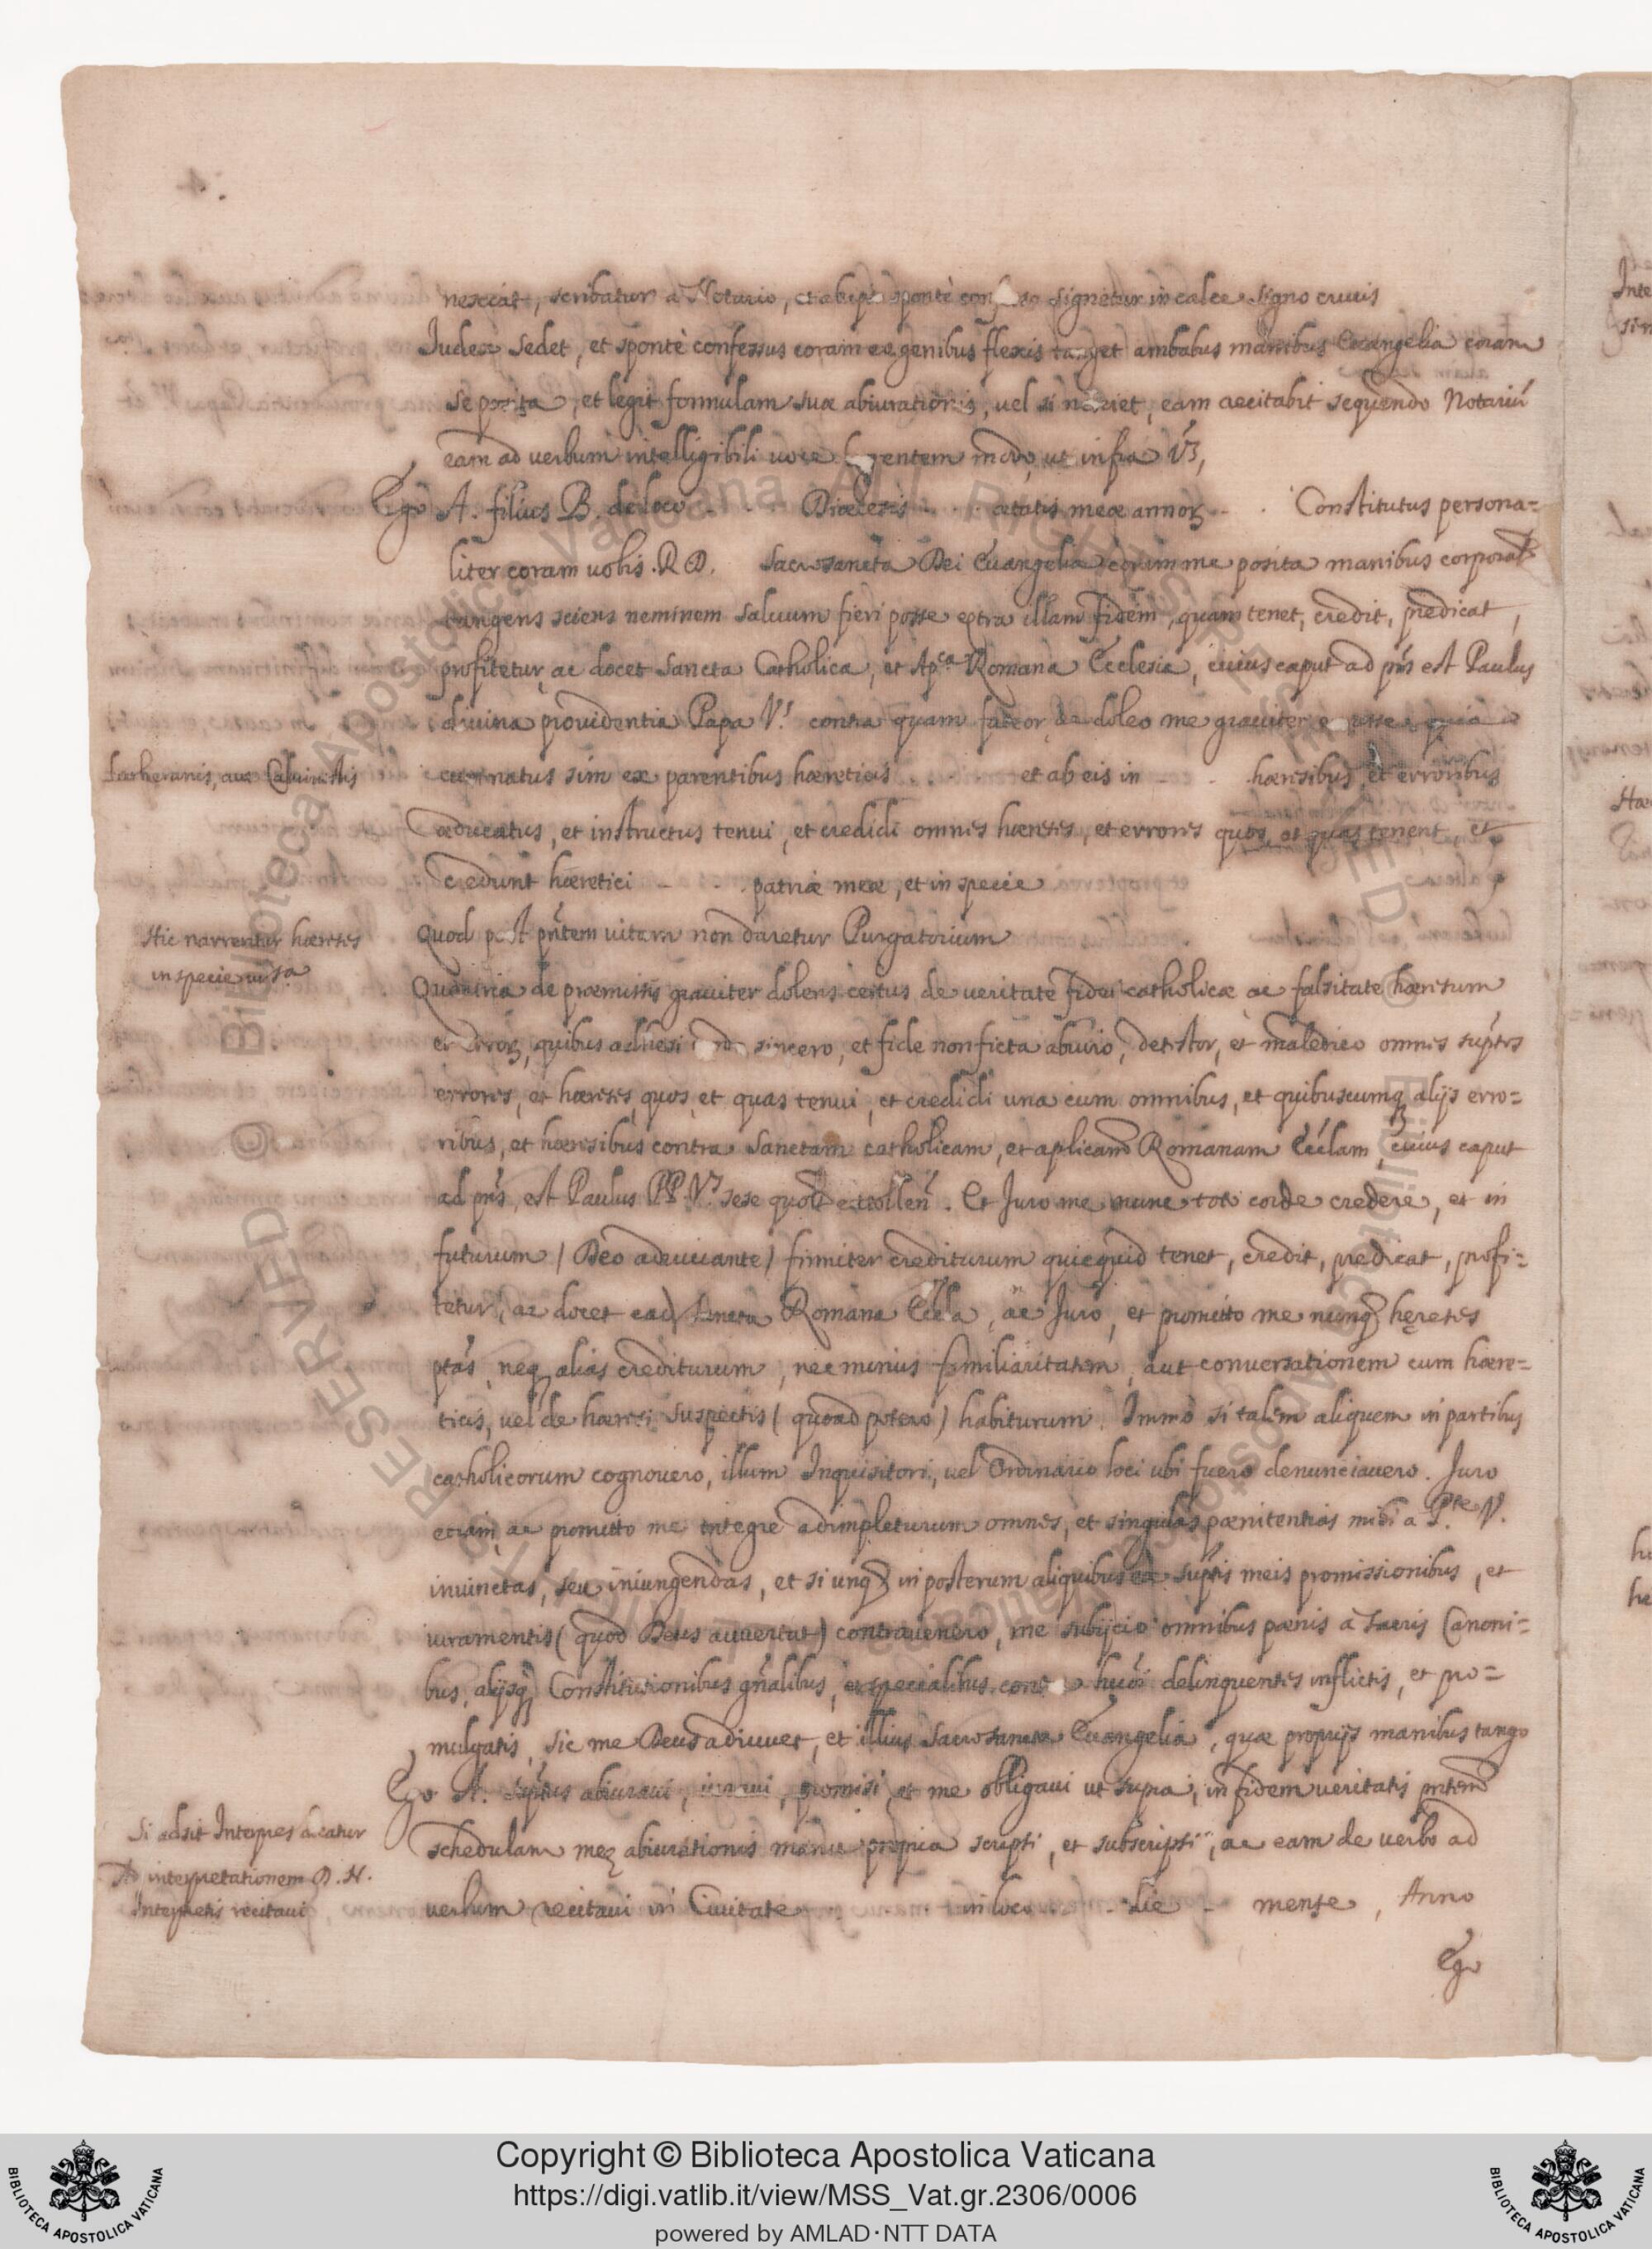 nesciat, scribatur a Notario, et ab ipso sponte confesso signetur in calce signo crucis
Iudex sedet, et spontè confessus coram eo genibus flexis tanget ambabus manibus Euangelia coram
se posita, et legit formulam suæ abiurationis, uel si nesciet, eam recitabit sequendo Notariũ
eam ad uerbum intelligibili uoce legentem modo, ut infra Vȝ,
Ego A. filius B. de loco . . . Diœcesis . . . ætatis meæ annoꝝ . . Constitutus persona=
liter coram uobis .R D. Sacrosancta Dei Euangelia coram me posita manibus corporalr
tangens sciens neminem saluum fieri posse extra illam fidem, quam tenet, credit, predicat,
profitetur, ac docet sancta Catholica, et Ap.ca Romana Ecclesia, cuius caput ad pñs est Paulus
diuina prouidentia Papa V.s contra quam fateor, et doleo me grauiter quia
Lutheranis, aut Caluinistis
cum natus sim ex parentibus hæreticis . . et ab eis in . . hæresibus, et erroribus
educatus, et instructus tenui, et credidi omnes hæreses, et errores quos, et quas tenent, et
credunt hæretici . . . patriæ meæ, et in specie
Hic narrentur hæreses
in specie
Quod post pñtem uitam non daretur Purgatorium
de præmissis grauiter dolens certus de ueritate fidei catholicæ ac falsitate hæresum
et erroꝝ, quibus adhesi corde sincero, et fide non ficta abiuro, detestor, et maledico omnes supt̃os
errores, et hæreses, quos, et quas tenui, et credidi una cum omnibus, et quibuscumqꝫ alijs erro=
ribus, et hæresibus contra sanctam catholicam, et aplicam Romanam Ecclam, cuius caput
ad pñs, est Paulus PP. V.s sese quomodolt extollen̄. Et Juro me nunc toto corde credere, et in
futurum / Deo adiuuante / firmiter crediturum quicquid tenet, credit, predicat, profi=
tetur, ac docet ead sancta Romana Eccla, ac Juro, et promitto me nunqꝫ hęreses
ptãs, neqꝫ alias crediturum, nec minus familiaritatem, aut conuersationem cum hære=
ticis, uel de hæresi suspectis ( quoad potero ) habiturum. Immò si talem aliquem in partibus
catholicorum cognouero, illum Inquisitori, uel Ordinario loci ubi fuero denunciauero. Juro
etiam, ac promitto me integre adimpleturum omnes, et singulas pænitentias mihi a P.te V.
iniunctas, seu iniungendas, et si unqꝫ in posterum aliquibus ex supt̃is meis promissionibus, et
iuramentis ( quod Deus auertat ) contrauenero, me subijcio omnibus pænis a Sacris Canoni=
bus, alijsqꝫ Constitutionibus gñalibus, et specialibus contra hmõi delinquentes inflictis, et pro=
mulgatis, sic me Deus adiuuet, et illius Sacrosancta Euangelia, quæ proprijs manibus tango
Ego A. supt̃us abiuraui, iuraui, promisi, et me obligaui ut supra, in fidem ueritatis pñtem
Si adsit Interpres dicatur
Ad interpretationem D. H.
Interpretis recitaui
schedulam meę abiurationis manu propria scripsi, et subscripsi, ac eam de uerbo ad
uerbum recitaui in Ciuitate . in loco . . die . mense , Anno
Ego
Copyright © Biblioteca Apostolica Vaticana
https://digi.vatlib.it/view/MSS_Vat.gr.2306/0006
powered by AMLAD·NTT DATA
BIBLIOTECA APOSTOLICA VATICANA
BIBLIOTECA APOSTOLICA VATICANA